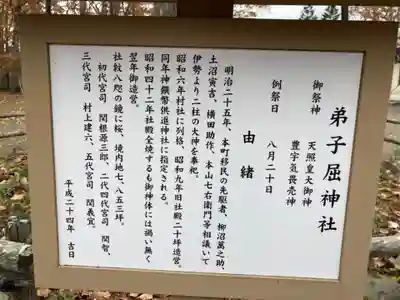 弟子屈神社
御祭神 天照皇大御神
豊宇気毘売神
例祭日 八月二十日
由緒
明治二十五年、本町移民の先駆者、柳沼萬之助、
土沼寅吉、横田助作、本山七右衛門等相議いて
伊勢より二柱の大神を奉祀。
昭和六年村社に列格、昭和九年旧社殿二十坪造営。
同年神饌幣供進神社に指定される。
昭和四十二年社殿全焼するも御神体には禍い無く
翌年御造営。
社紋八咫の鏡に桜、境内地七、八五三坪。
初代宮司 関根源三郎、二代四代宮司 関智、
三代宮司 村上建六、五代宮司 関義宜。
平成二十四年 吉日